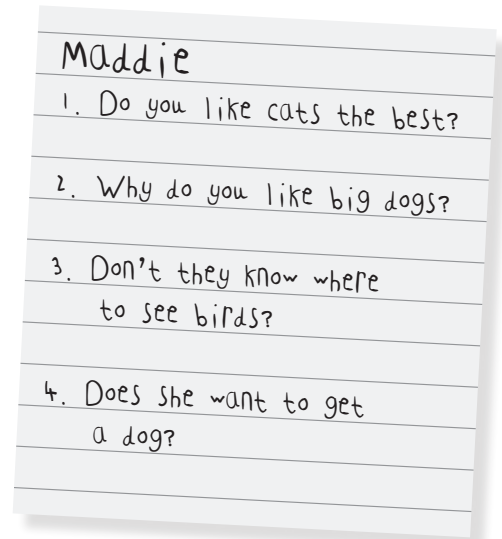 Maddie
1. Do you like cats the best?
2. Why do you like big dogs?
3. Don't they know where
to see birds?
4. Does she want to get
a dog?